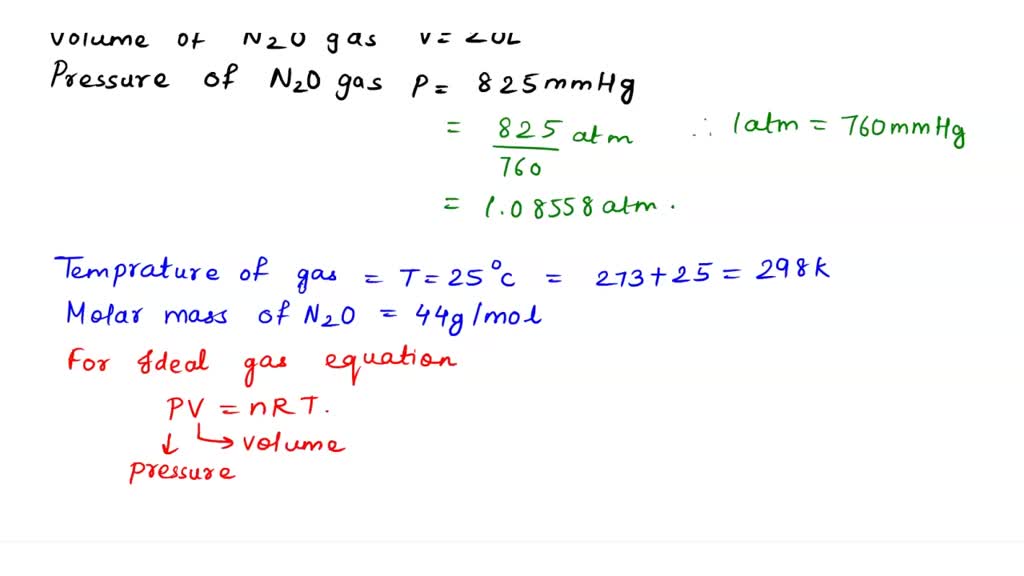 Volume of N2O gas V= 20L
Pressure of N2O gas P= 825mmHg
= 825/760 atm ∴ 1atm = 760mmHg
= 1.08558atm.
Temprature of gas = T=25°C = 273+25=298k
Molar mass of N2O = 44g/mol
For Ideal gas equation
PV = nRT.
↓ ↳ volume
pressure